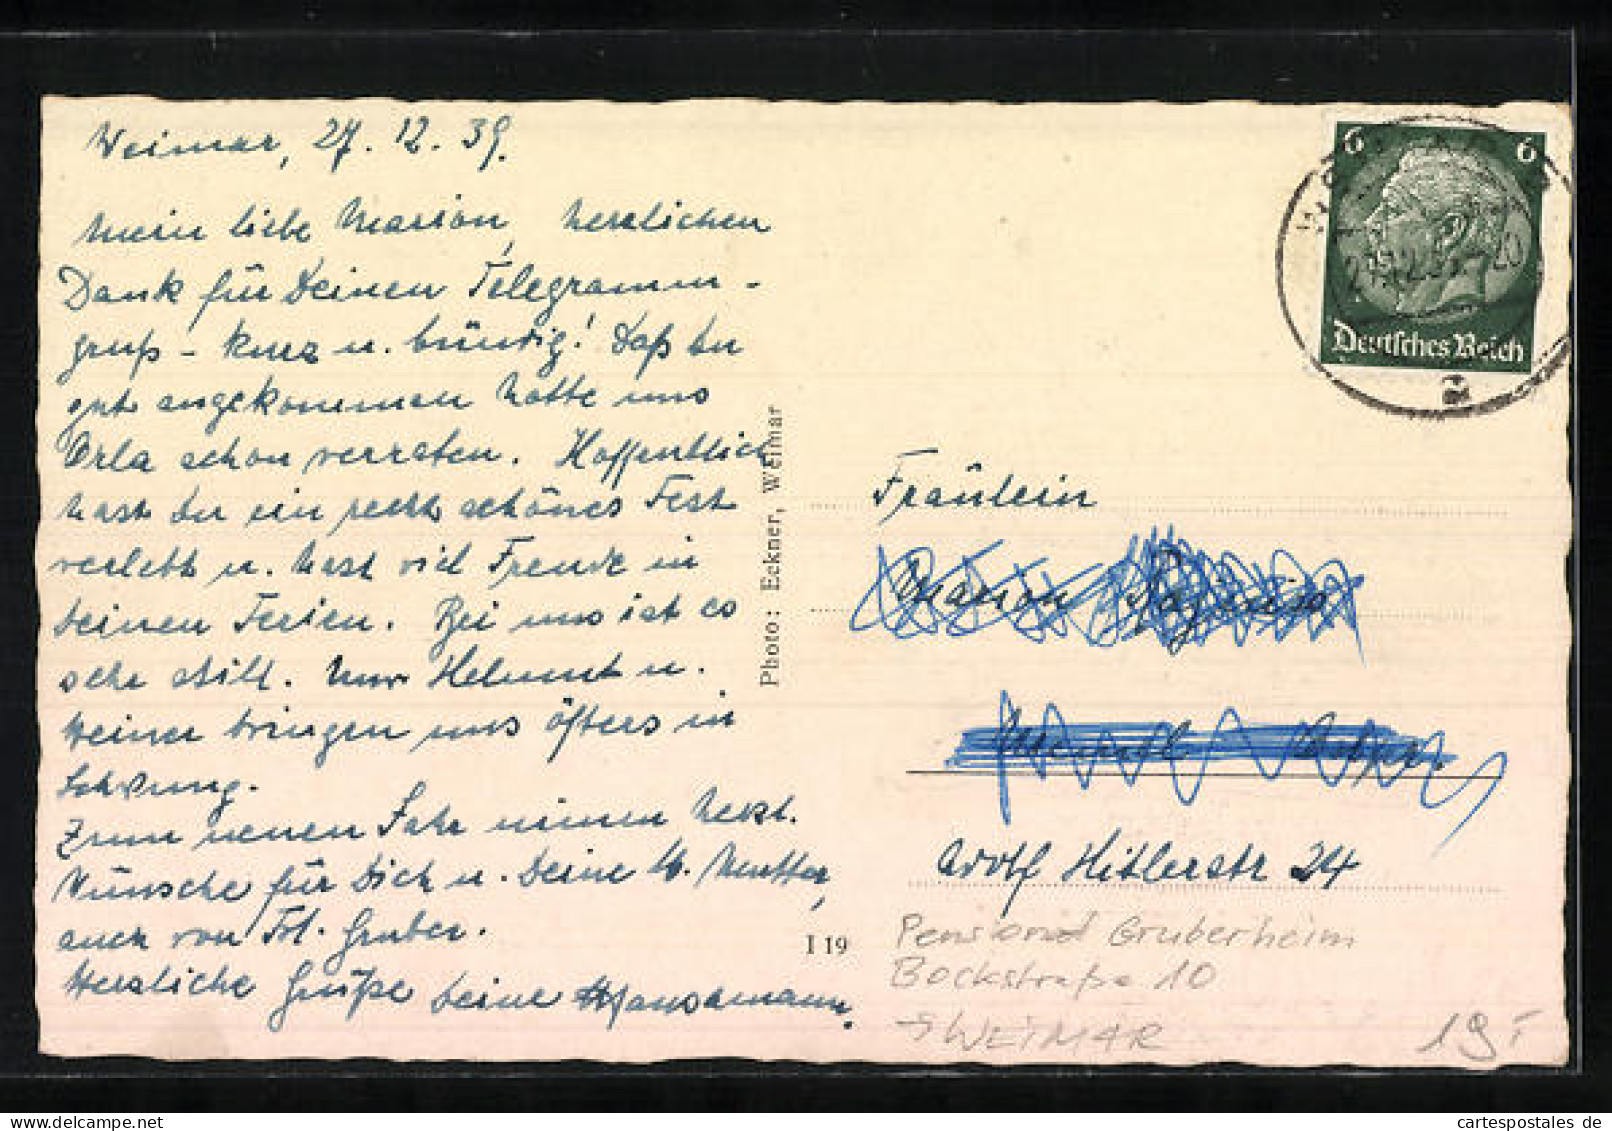 Weimar, 27. 12. 39.
Mein liebe Marion, herzlichen
Dank für Deinen Telegramm-
gruß - kurz u. bündig! Daß du
gut angekommen hatte uns
Orla schon verraten. Hoffentlich
hast du ein recht schönes Fest
verlebt u. hast viel Freude in
deinen Ferien. Bei uns ist es
sehr still. Nur Helmut u.
Heiner bringen uns öfters in
Schwung.
Zum neuen Jahr meinen herzl.
Wünsche für Dich u. Deine lb. Mutter,
auch von Frl. Gruber.
Herzliche Grüße deine
Photo: Eckner, Weimar
I 19
6 6
Deutsches Reich
a
Fräulein
Marion
Adolf Hitlerstr 24
Pensionat Gruberheim
Bockstraße 10
→ WEIMAR
19.-
cartespostales de